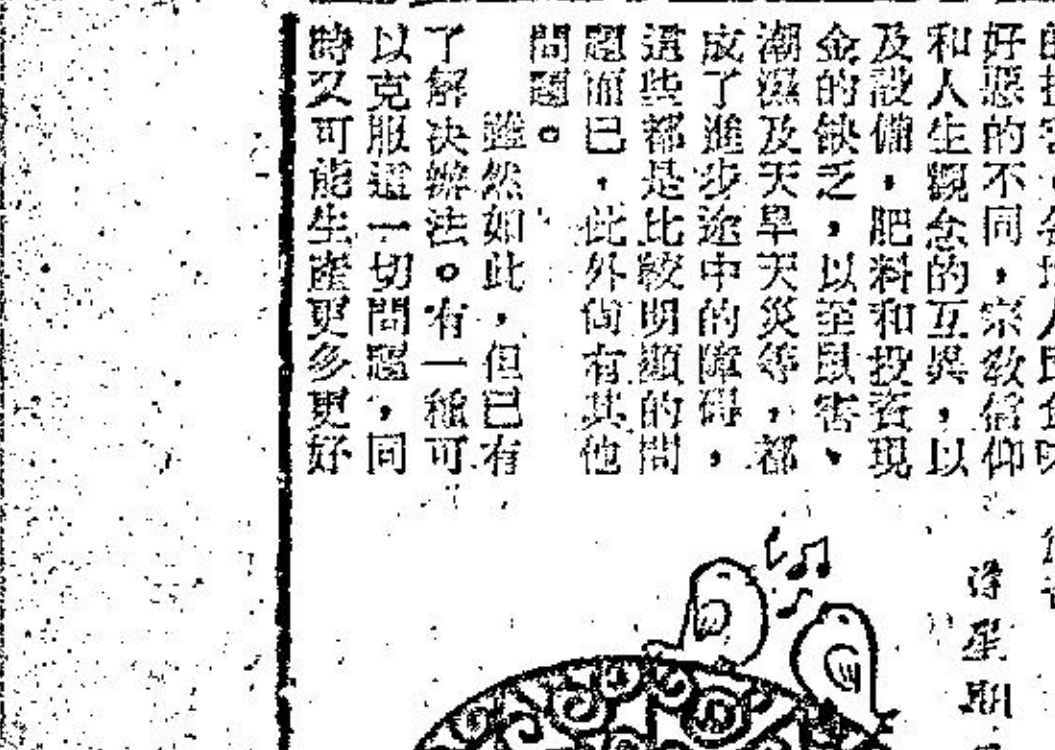 好惡的不同，宗敎信仰
和人生觀念的互異，以
及設備，肥料和投資現
金的缺乏，以至鼠害、
潮濕及天旱天災等，都
成了進步途中的障碍，
這些都是比較明顯的問
題而已，此外尙有其他
問題。
雖然如此，但已有
了解决辦法。有一種可
以克服這一切問題，同
時又可能生產更多更好
星期